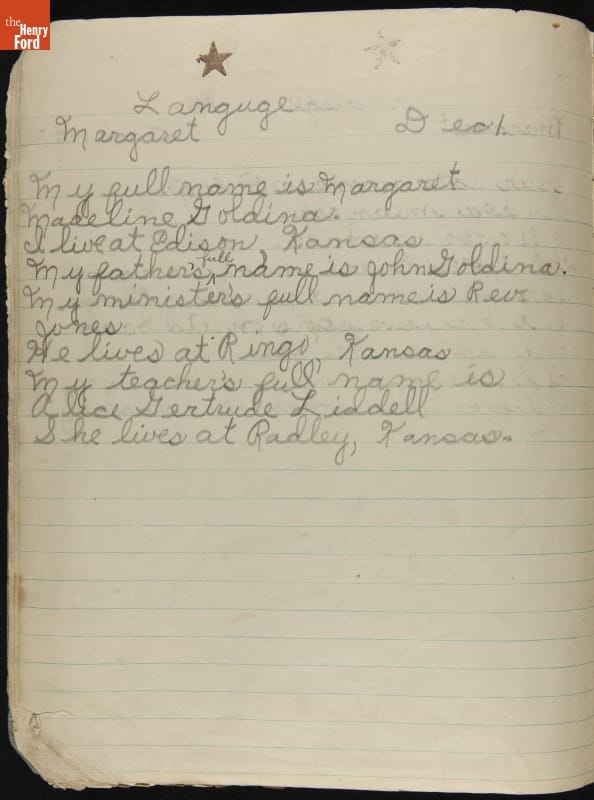 the
Henry
Ford
Languge
Margaret Dec 1.
My full name is Margaret
Madeline Goldina.
I live at Edison, Kansas
My father's full name is John Goldina.
My minister's full name is Rev.
Jones
He lives at Ringo, Kansas
My teacher's full name is
Alice Gertrude Liddell
She lives at Radley, Kansas.